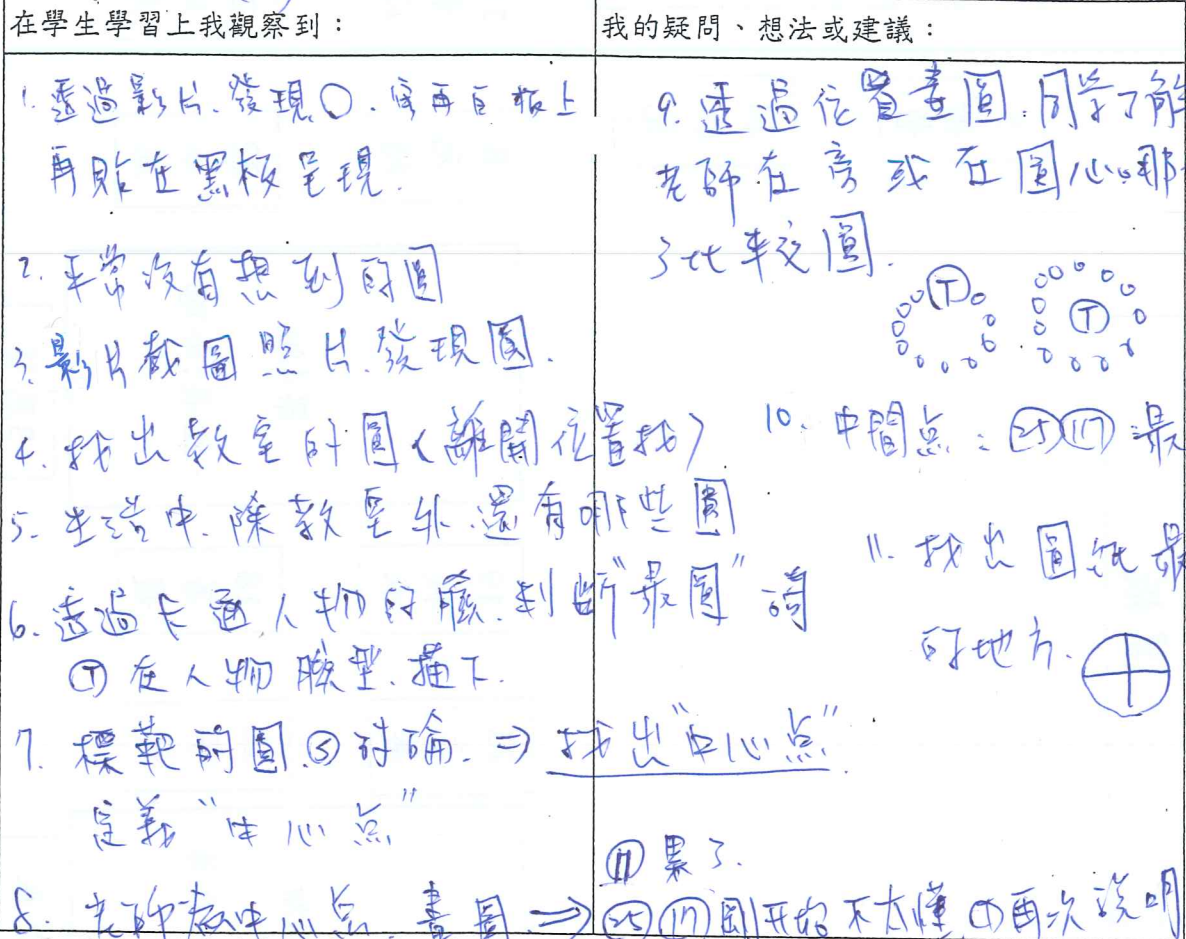 在學生學習上我觀察到：
1. 透過影片、發現○、寫再白板上
再貼在黑板呈現.
2. 平常沒有想到的圓
3. 影片截圖照片.發現圓.
4. 找出教室的圓(離開位置找)
5. 生活中、除教室外.還有哪些圓
6. 透過卡通人物的臉.判斷"最圓"
Ⓣ在人物臉型.描下.
7. 標靶的圓.Ⓢ討論. ⇒ 找出"中心点"
定義"中心点"
8. 老師 中心点.畫圓 ⇒
我的疑問、想法或建議：
9. 透過位置畫圓.同學了解
老師在旁或在圓心.哪
了比較圓.
Ⓣ Ⓣ
10. 中間点：㉕⑰ 最
11. 找出圓紙最
的地方.
⑰累了.
㉕⑰剛開始不太懂.Ⓣ再次說明